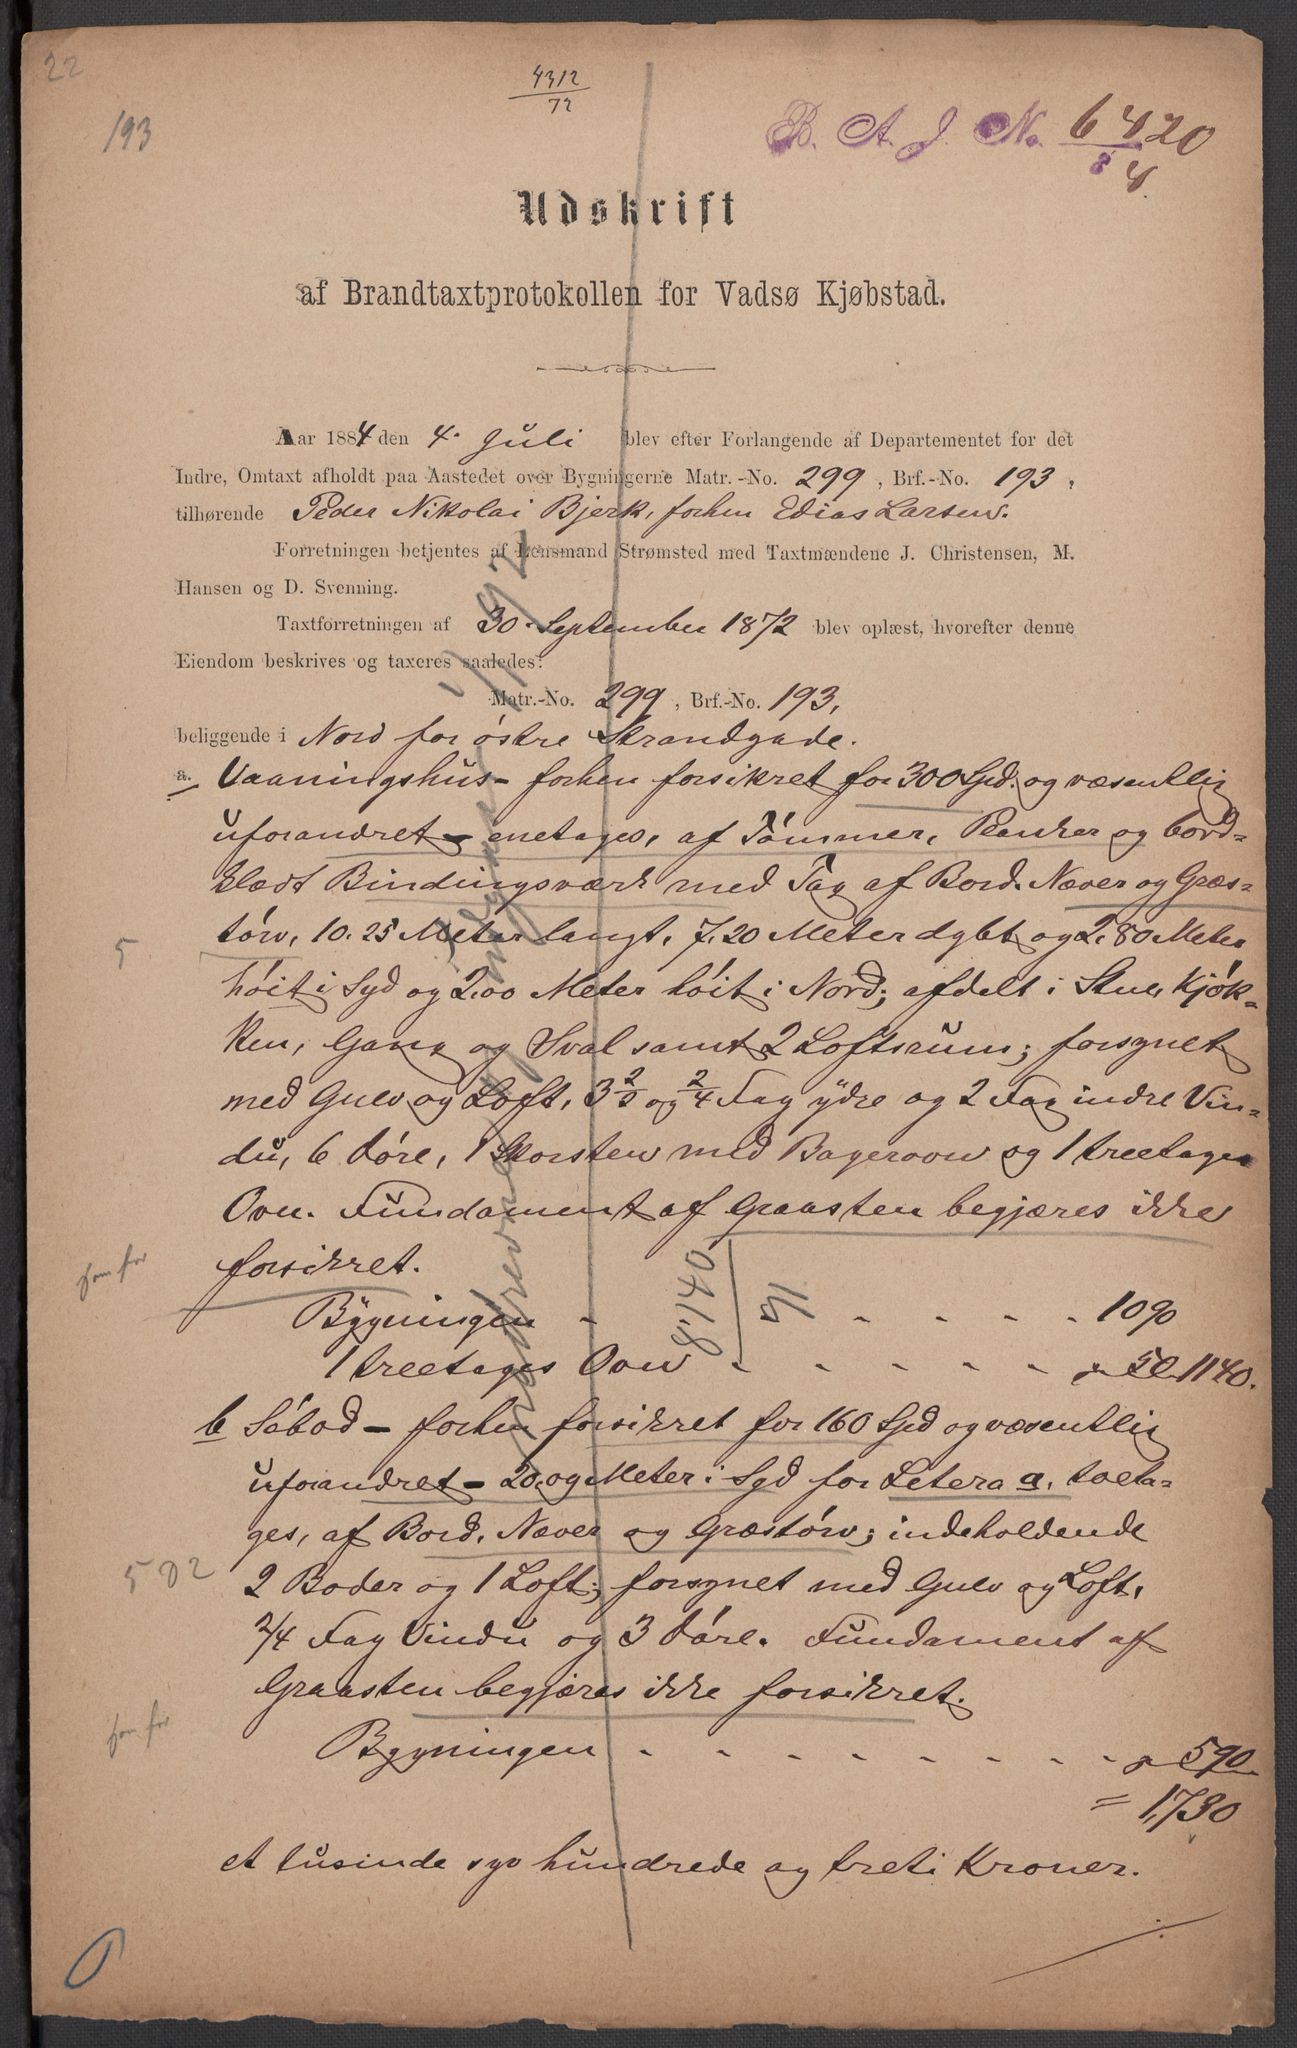 22
4312
72
193
B. A. J. No. 6420
8 4
Udskrift
af Brandtaxtprotokollen for Vadsø Kjøbstad.
Aar 1884 den 4. Juli blev efter Forlangende af Departementet for det
Indre, Omtaxt afholdt paa Aastedet over Bygningerne Matr.-No. 299, Brf.-No. 193,
tilhørende Peder Nikolai Bjerk, forhen Edias Larsen.
Forretningen betjentes af Lensmand Strømsted med Taxtmændene J. Christensen, M.
Hansen og D. Svenning.
Taxtforretningen af 30. September 1872 blev oplæst, hvorefter denne
Eiendom beskrives og taxeres saaledes:
Matr.-No. 299, Brf.-No. 193,
beliggende i Nord for östre Strandgade.
a. Vaaningshus - forhen forsikret for 300 Spd. og væsentlig
uforandret - enetages, af Tömmer, Planker og bord-
klædt Bindingsværk med Tag af Bord, Næver og Græs-
törv, 10.25 Meter langt, 7.20 Meter dybt og 2.80 Meter
5
höit i Syd og 2.00 Meter höit i Nord; afdelt i Stue, Kjök-
ken, Gang og Sval samt 2 Loftsrum; forsynet
med Gulv og Loft, 3 2/3 og 2/4 Fag ydre og 2 Fag indre Vin-
du, 6 Döre, 1 Skorsten med Bagerovn og 1 treetages
Ovn. Fundament af Graasten begjæres ikke
forsikret.
Bygningen - - - - - 1090
1 treetages Ovn - - - - - " 50 1140.
8.140 71
b Söbod - forhen forsikret for 160 Spd og væsentlig
uforandret - 20.09 Meter i Syd for Letera a, toeta-
ges, af Bord, Næver og Græstörv; indeholdende
502
2 Boder og 1 Loft; forsynet med Gulv og Loft,
2/4 Fag Vindu og 3 Döre. Fundament af
Graasten begjæres ikke forsikret.
Bygningen - - - - - - - - " 590
= 1,730
et tusinde syv hundrede og treti Kroner.